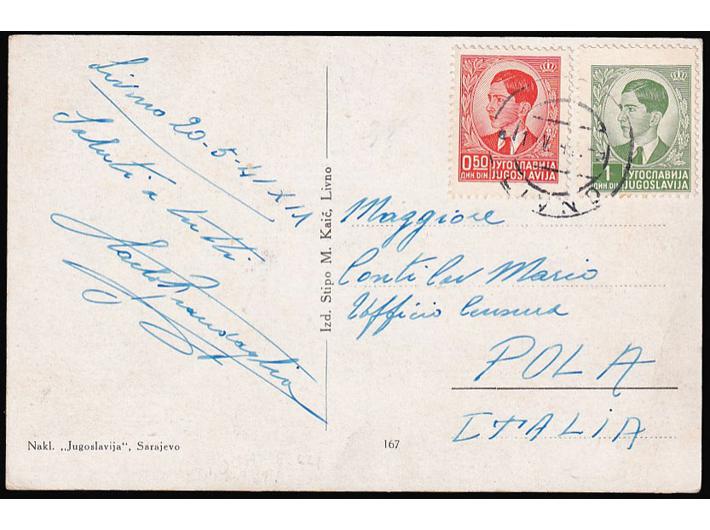 Livno 20-5-41 XIX
Saluti a
tutti
Izd. Stipo M. Kaić, Livno
Nakl. „Jugoslavija“, Sarajevo
167
0,50 ЈУГОСЛАВИЈА
ДИН DIN JUGOSLAVIJA
1 ЈУГОСЛАВИЈА
ДИН. DIN JUGOSLAVIJA
Maggiore
Conti Cav Mario
Ufficio Censura
POLA
ITALIA